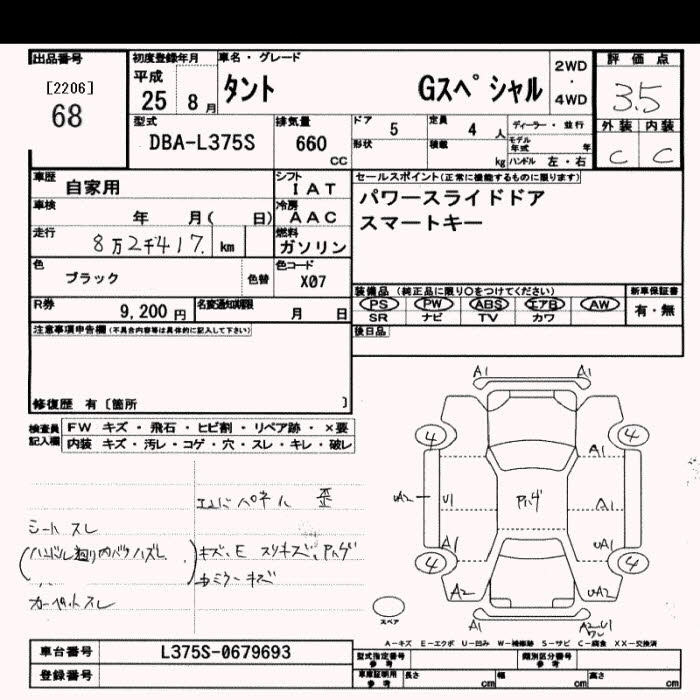 出品番号 初度登録年月 車名・グレード 2WD・4WD 評価点
[2206] 平成 タント Gスペシャル 3.5
68 25 8月
型式 排気量 ドア 5 定員 4人 ディーラー・並行 外装 内装
DBA-L375S 660 CC 形状 積載 kg モデル年式 年 ハンドル 左・右 C C
車歴 自家用 シフト IAT セールスポイント(正常に機能するものに限ります)
車検 年 月( 日) 冷房 AAC パワースライドドア
走行 8万2千417. km 燃料 ガソリン スマートキー
色 ブラック 色替 色コード X07
装備品 (純正品に限り○をつけてください) 新車保証書
R券 9,200円 名変通知期限 月 日 PS PW ABS エアB AW 有・無
SR ナビ TV カワ
注意事項申告欄(不具合内容等は具体的に記入して下さい) 後日品
修復歴 有〔箇所 〕
検査員記入欄 FW キズ・飛石・ヒビ割・リペア跡・×要
内装 キズ・汚レ・コゲ・穴・スレ・キレ・破レ
A1 A1
4 4
A1
UA2 U1 A1
A1 UA1
4 4
A2 UA2
A1 A2-U1
パネル 歪
シート スレ
キズ、E スリキズ、
カーペットスレ
スペア
A-キズ E-エクボ U-凹み W-補修跡 S-サビ C-腐食 XX-交換済
車台番号 L375S-0679693 型式指定番号 参考 類別区分番号 参考
登録番号 車庫証明用 参考 長さ cm 幅 cm 高さ cm